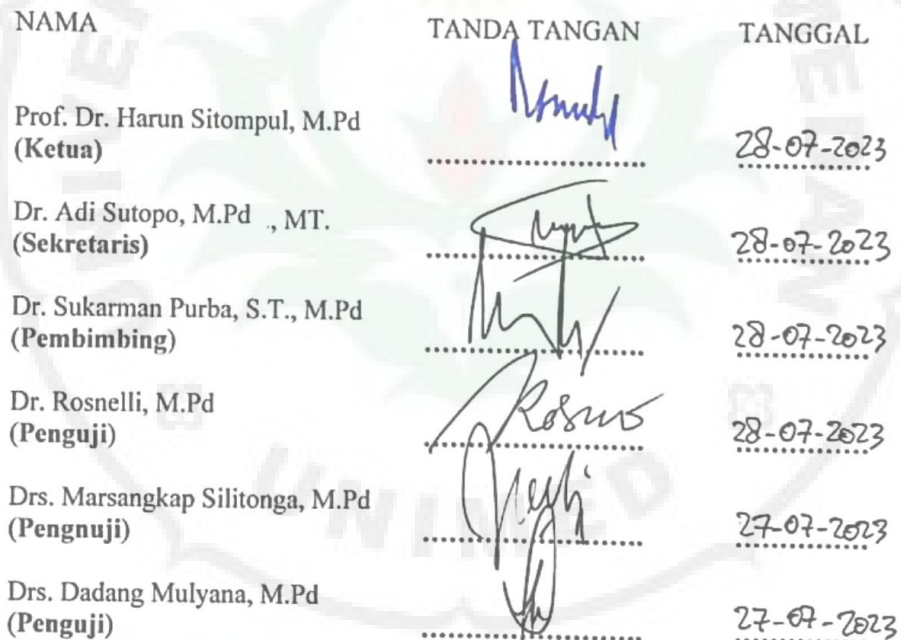 NAMA TANDA TANGAN TANGGAL
Prof. Dr. Harun Sitompul, M.Pd
(Ketua) 28-07-2023
Dr. Adi Sutopo, M.Pd ., MT.
(Sekretaris) 28-07-2023
Dr. Sukarman Purba, S.T., M.Pd
(Pembimbing) 28-07-2023
Dr. Rosnelli, M.Pd
(Penguji) 28-07-2023
Drs. Marsangkap Silitonga, M.Pd
(Pengnuji) 27-07-2023
Drs. Dadang Mulyana, M.Pd
(Penguji) 27-07-2023
UNIMED